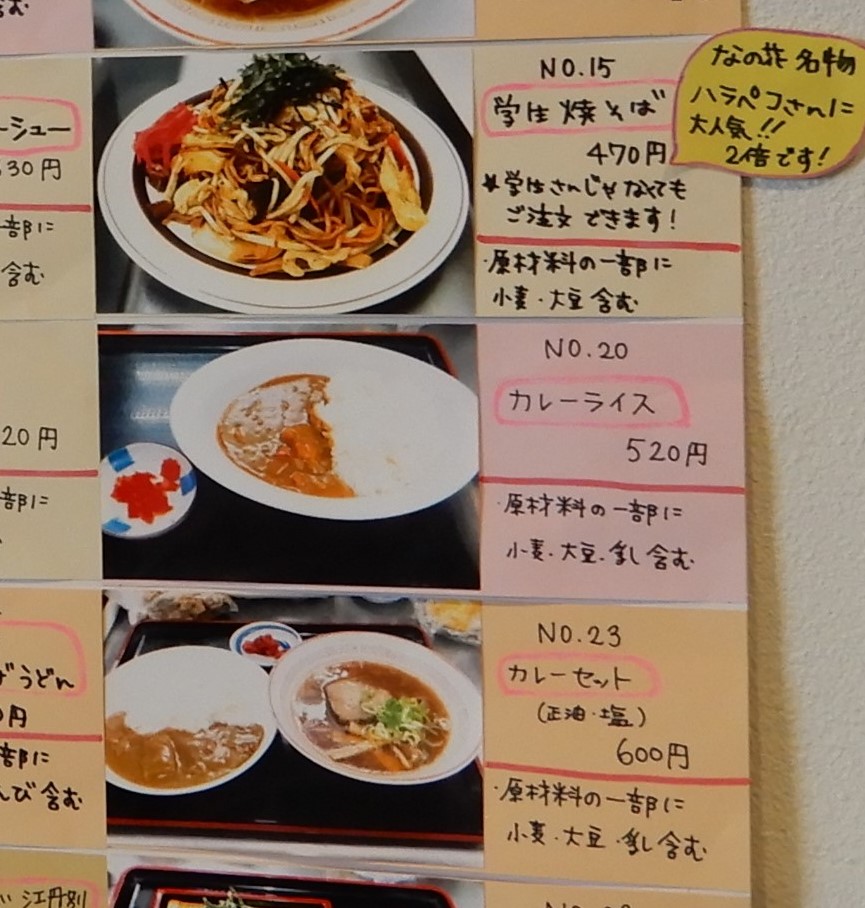 含む
ーシュー
630円
一部に
含む
NO.15
学生焼そば
470円
★学生さんじゃなくても
ご注文できます!
・原材料の一部に
小麦・大豆含む
なの花名物
ハラペコさんに
大人気!!
2倍です!
20円
一部に
NO.20
カレーライス
520円
・原材料の一部に
小麦・大豆・乳含む
うどん
円
一部に
えび含む
NO.23
カレーセット
(正油・塩)
600円
・原材料の一部に
小麦・大豆・乳含む
江丹別